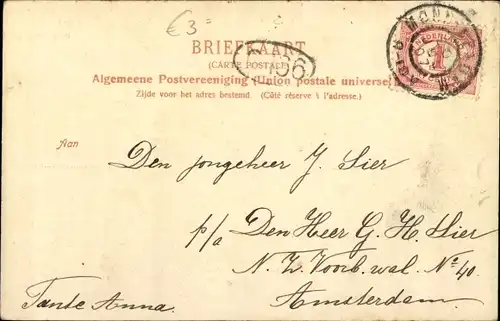 €3=
BRIEFKAART
(CARTE POSTALE)
Algemeene Postvereeniging (Union postale universelle)
Zijde voor het adres bestemd. (Côté réservé à l'adresse.)
NEDERLAND
1
Aan
Den jongeheer J. Sier
p/a Den Heer G. H. Sier
N. Z. Voorb. wal. No 40.
Amsterdam.
Tante Anna.